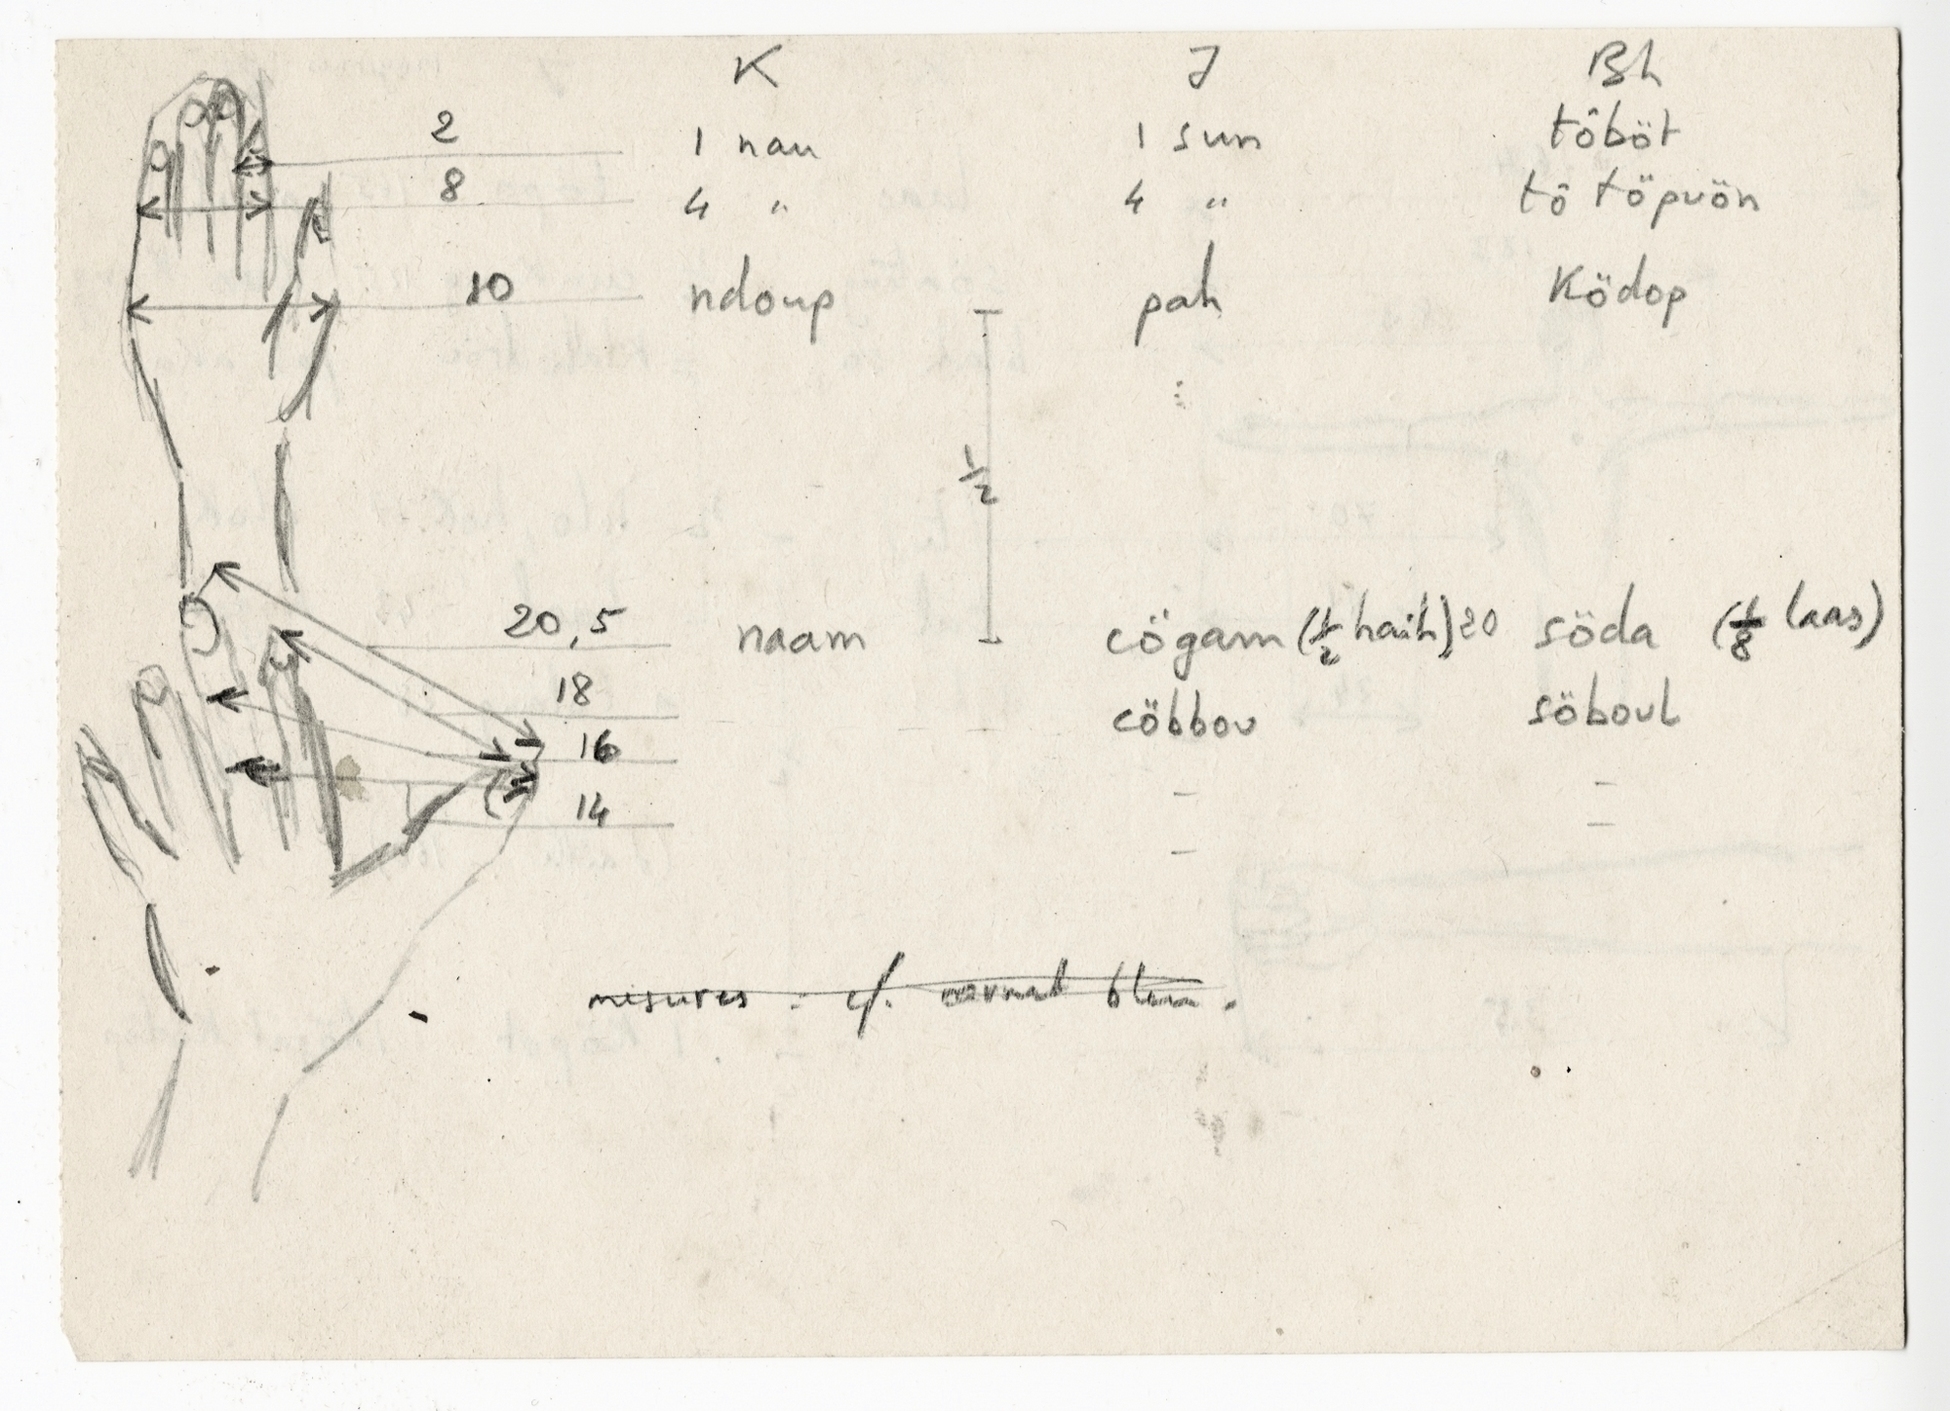 K J Bh
2 1 nau 1 sun töböt
8 4 " 4 " tö töpuön
10 ndoup pah Ködop
1/2
20,5 naam cögam (1/2 haih) 20 söda (1/8 laas)
18 cöbbou söboul
16 - -
14 - -
mesures : cf. carnet bleu.